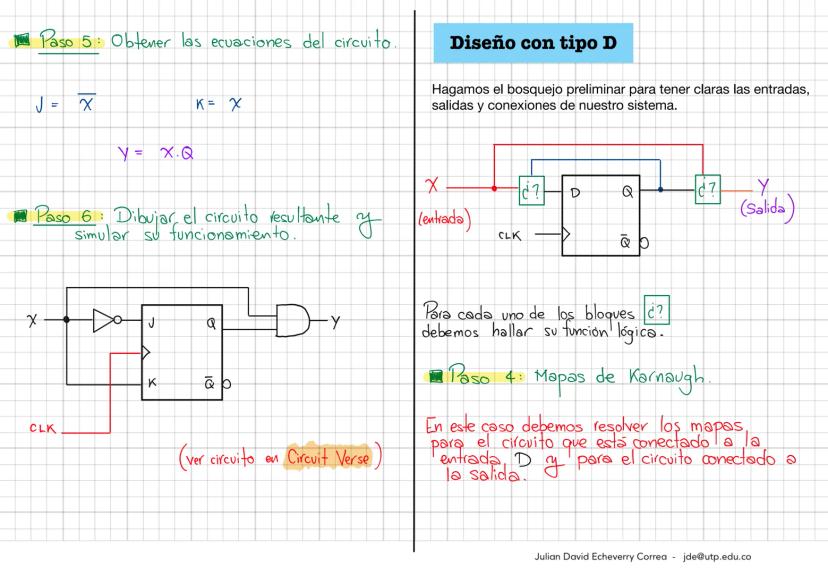 Paso 5: Obtener las ecuaciones del circuito.
J = X̅ K = X
Y = X.Q
Paso 6: Dibujar el circuito resultante y
simular su funcionamiento.
X J Q Y
K Q̅
CLK
(ver circuito en Circuit Verse)
Diseño con tipo D
Hagamos el bosquejo preliminar para tener claras las entradas,
salidas y conexiones de nuestro sistema.
X ¿? D Q ¿? Y
(entrada) (Salida)
CLK Q̅
Para cada uno de los bloques ¿?
debemos hallar su función lógica.
Paso 4: Mapas de Karnaugh.
En este caso debemos resolver los mapas
para el circuito que está conectado a la
entrada D y para el circuito conectado a
la salida.
Julian David Echeverry Correa - jde@utp.edu.co